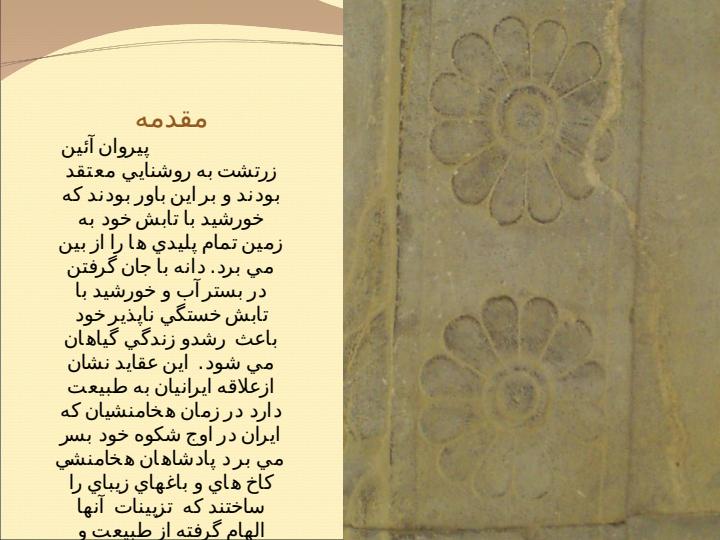 مقدمه
پيروان آئين
زرتشت به روشنايي معتقد
بودند و بر اين باور بودند که
خورشيد با تابش خود به
زمين تمام پليدي ها را از بين
مي برد. دانه با جان گرفتن
در بستر آب و خورشيد با
تابش خستگي ناپذير خود
باعث رشدو زندگي گياهان
مي شود. اين عقايد نشان
ازعلاقه ايرانيان به طبيعت
دارد در زمان هخامنشيان که
ايران در اوج شکوه خود بسر
مي بر د پادشاهان هخامنشي
کاخ هاي و باغهاي زيباي را
ساختند که تزيينات آنها
الهام گرفته از طبيعت و